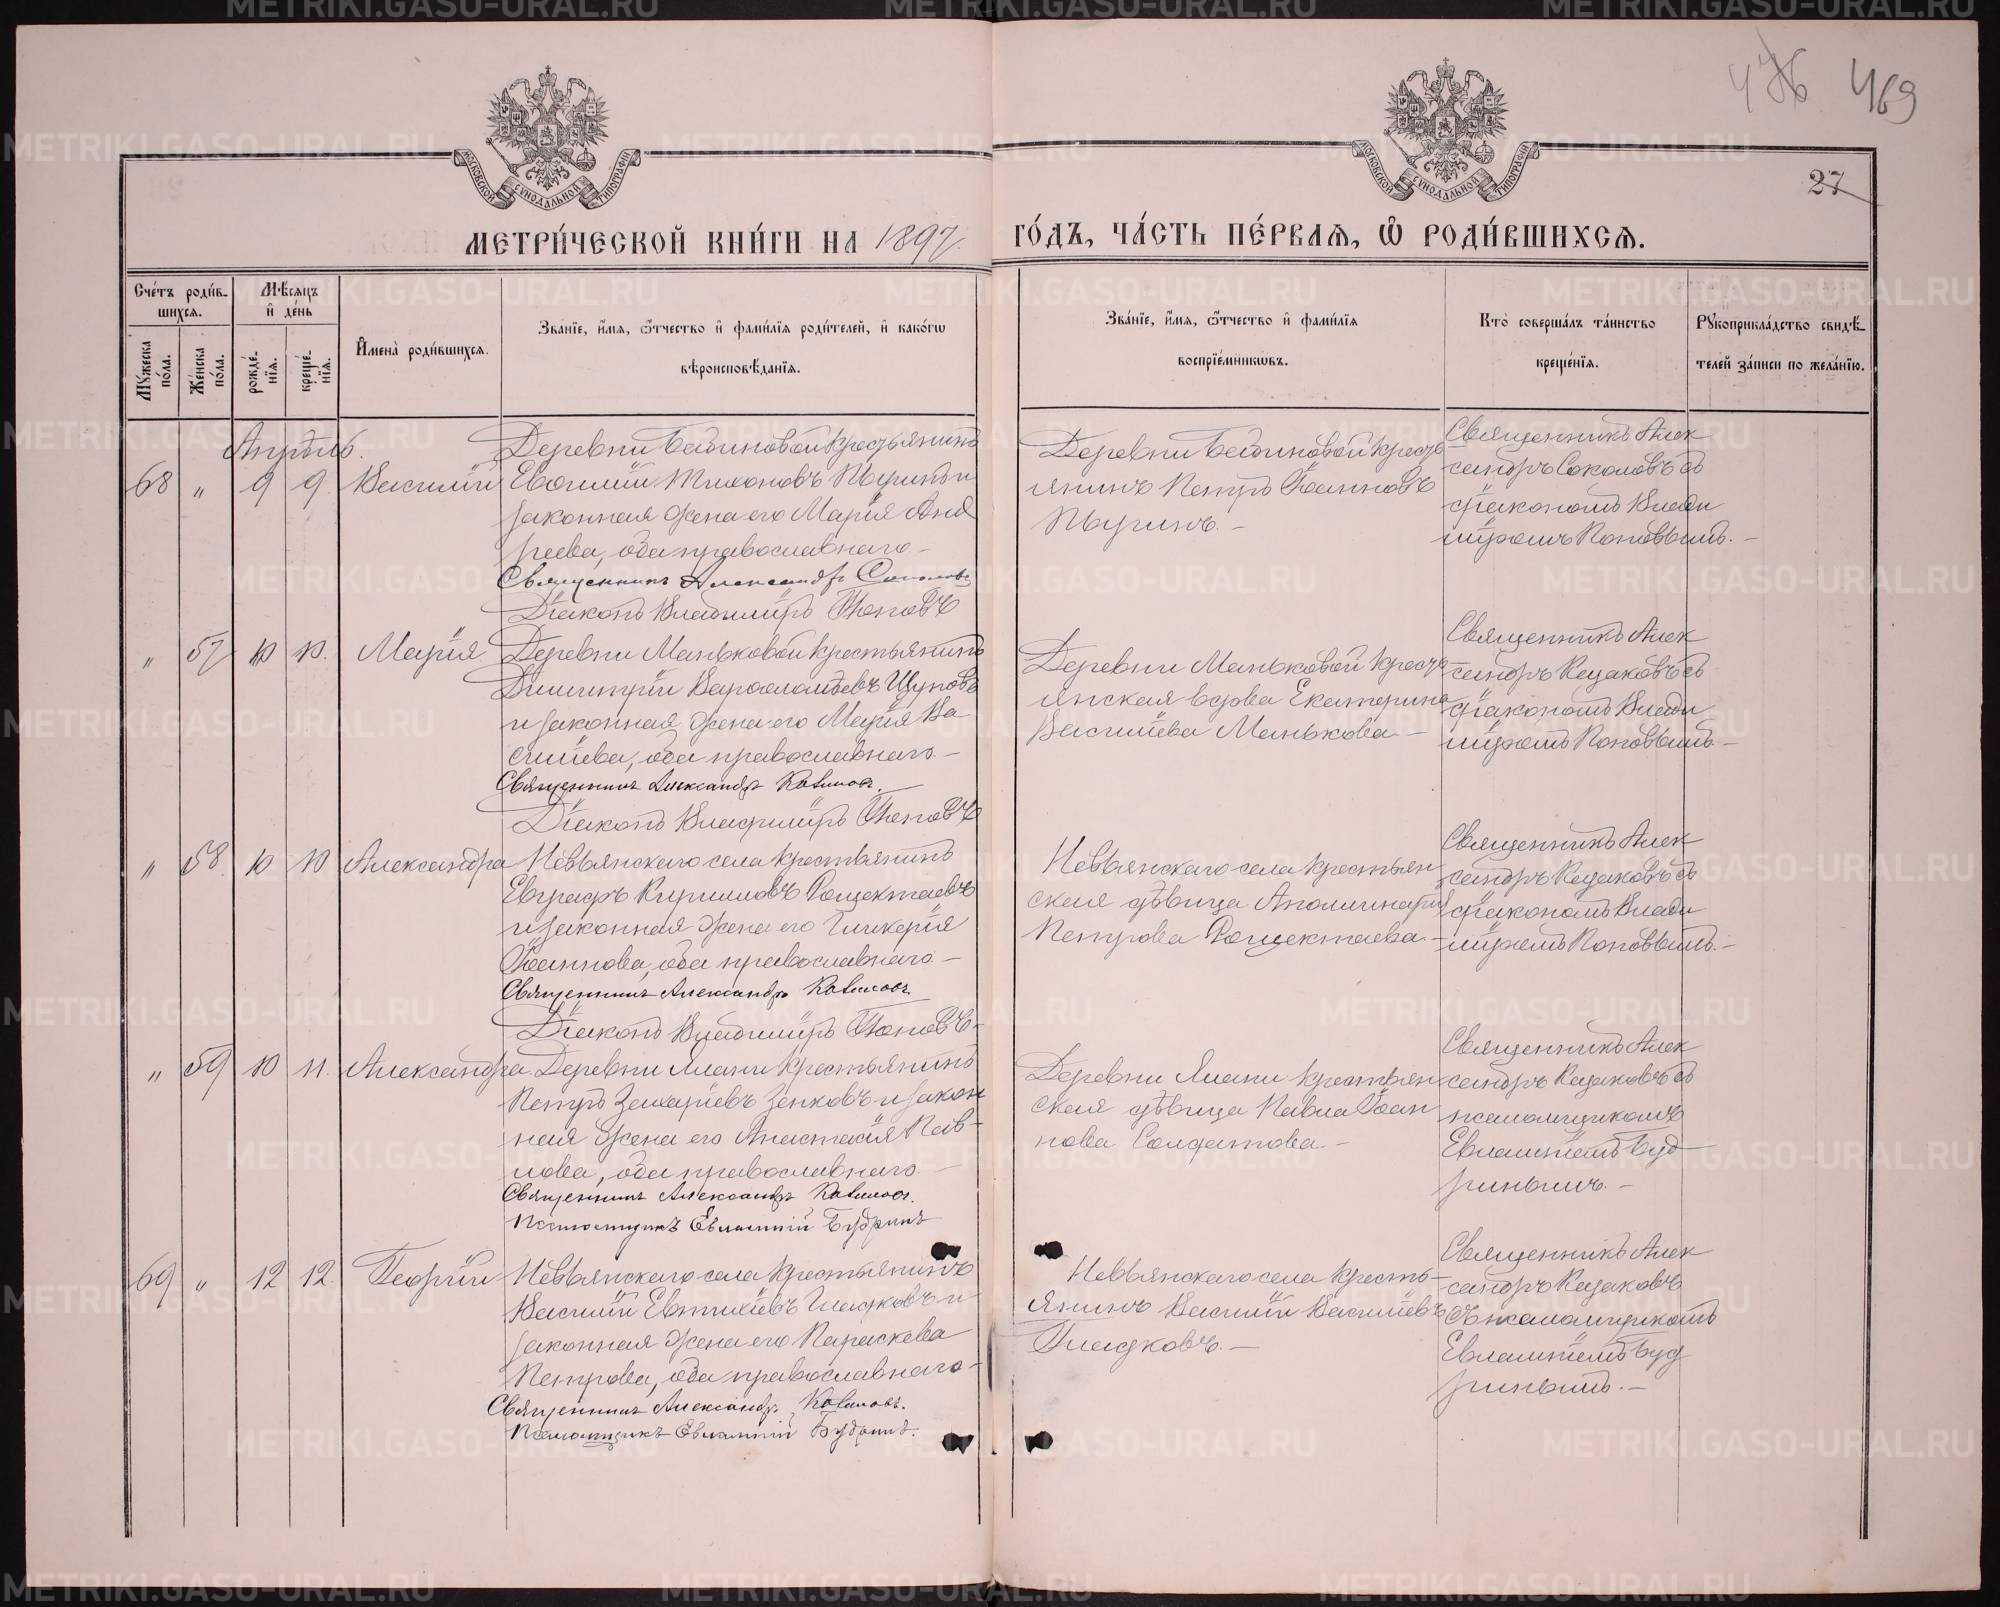 476 469
27
МОСКОВСКОЙ СУНОДАЛЬНОЙ ТИПОГРАФІИ
МОСКОВСКОЙ СУНОДАЛЬНОЙ ТИПОГРАФІИ
МЕТРИ́ЧЕСКОЙ КНИ́ГИ НА 1897 ГО́ДЪ, ЧА́СТЬ ПЕ́РВАѦ, Ѡ РОДИ́ВШИХСѦ.
Сче́тъ роди́в-
шихсѧ.
Мꙋ́жеска по́ла.
Же́нска по́ла.
Мѣ́сѧцъ и де́нь
рожде́нїѧ.
креще́нїѧ.
Имена̀ роди́вшихсѧ.
Зва́нїе, и́мѧ, ѻ́тчество и фами́лїѧ роди́телей, и како́гѡ
вѣроисповѣ́данїѧ.
Зва́нїе, и́мѧ, ѻ́тчество и фами́лїѧ
воспрїе́мникѡвъ.
Кто̀ соверша́лъ та́инство
креще́нїѧ.
Рꙋкоприкла́дство свидѣ́-
телей за́писи по жела́нїю.
Апрѣль.
68 " 9 9. Василій
Деревни Бѣдиновой крестьянинъ
Евѳимій Тихоновъ Пыринъ и
законная жена его Марія Анд
реева, оба православнаго. -
Священникъ Александръ Соколовъ
Діаконъ Владиміръ Поповъ
Деревни Бѣдиновой кресть
янинъ Петръ Іоанновъ
Пыринъ. -
Священникъ Алек
сандръ Соколовъ съ
діакономъ Влади
міромъ Поповымъ. -
" 57 10 10. Марія
Деревни Маньковой крестьянинъ
Димитрій Варѳоломѣевъ Щуповъ
и законная жена его Марія Ва
силіева, оба православнаго. -
Священникъ Александръ Казаковъ.
Діаконъ Владиміръ Поповъ
Деревни Маньковой кресть
янская вдова Екатерина
Василіева Манькова. -
Священникъ Алек
сандръ Казаковъ съ
діакономъ Влади
міромъ Поповымъ. -
" 58 10 10 Александра
Невьянскаго села крестьянинъ
Евграфъ Кирилловъ Рощектаевъ
и законная жена его Гликерія
Іоаннова, оба православнаго. -
Священникъ Александръ Казаковъ.
Діаконъ Владиміръ Поповъ. -
Невьянскаго села крестьян
ская дѣвица Аполлинарія
Петрова Рощектаева. -
Священникъ Алек
сандръ Казаковъ съ
діакономъ Влади
міромъ Поповымъ. -
" 59 10 11. Александра
Деревни Ялани крестьянинъ
Петръ Захаріевъ Зенковъ и закон
ная жена его Анастасія Пав-
лова, оба православнаго. -
Священникъ Александръ Казаковъ.
Псаломщикъ Евлампій Будринъ
Деревни Ялани крестьян
ская дѣвица Павла Іоан
нова Солдатова -
Священникъ Алек
сандръ Казаковъ съ
псаломщикомъ
Евлампіемъ Буд
ринымъ. -
69 " 12 12. Георгій
Невьянскаго села крестьянинъ
Василій Евтихіевъ Гладковъ и
законная жена его Параскева
Петрова, оба православнаго. -
Священникъ Александръ Казаковъ.
Псаломщикъ Евлампій Будринъ.
Невьянскаго села кресть-
янинъ Василій Василіевъ
Гладковъ. -
Священникъ Алек
сандръ Казаковъ
съ псаломщикомъ
Евлампіемъ Буд
ринымъ. -
METRIKI.GASO-URAL.RU